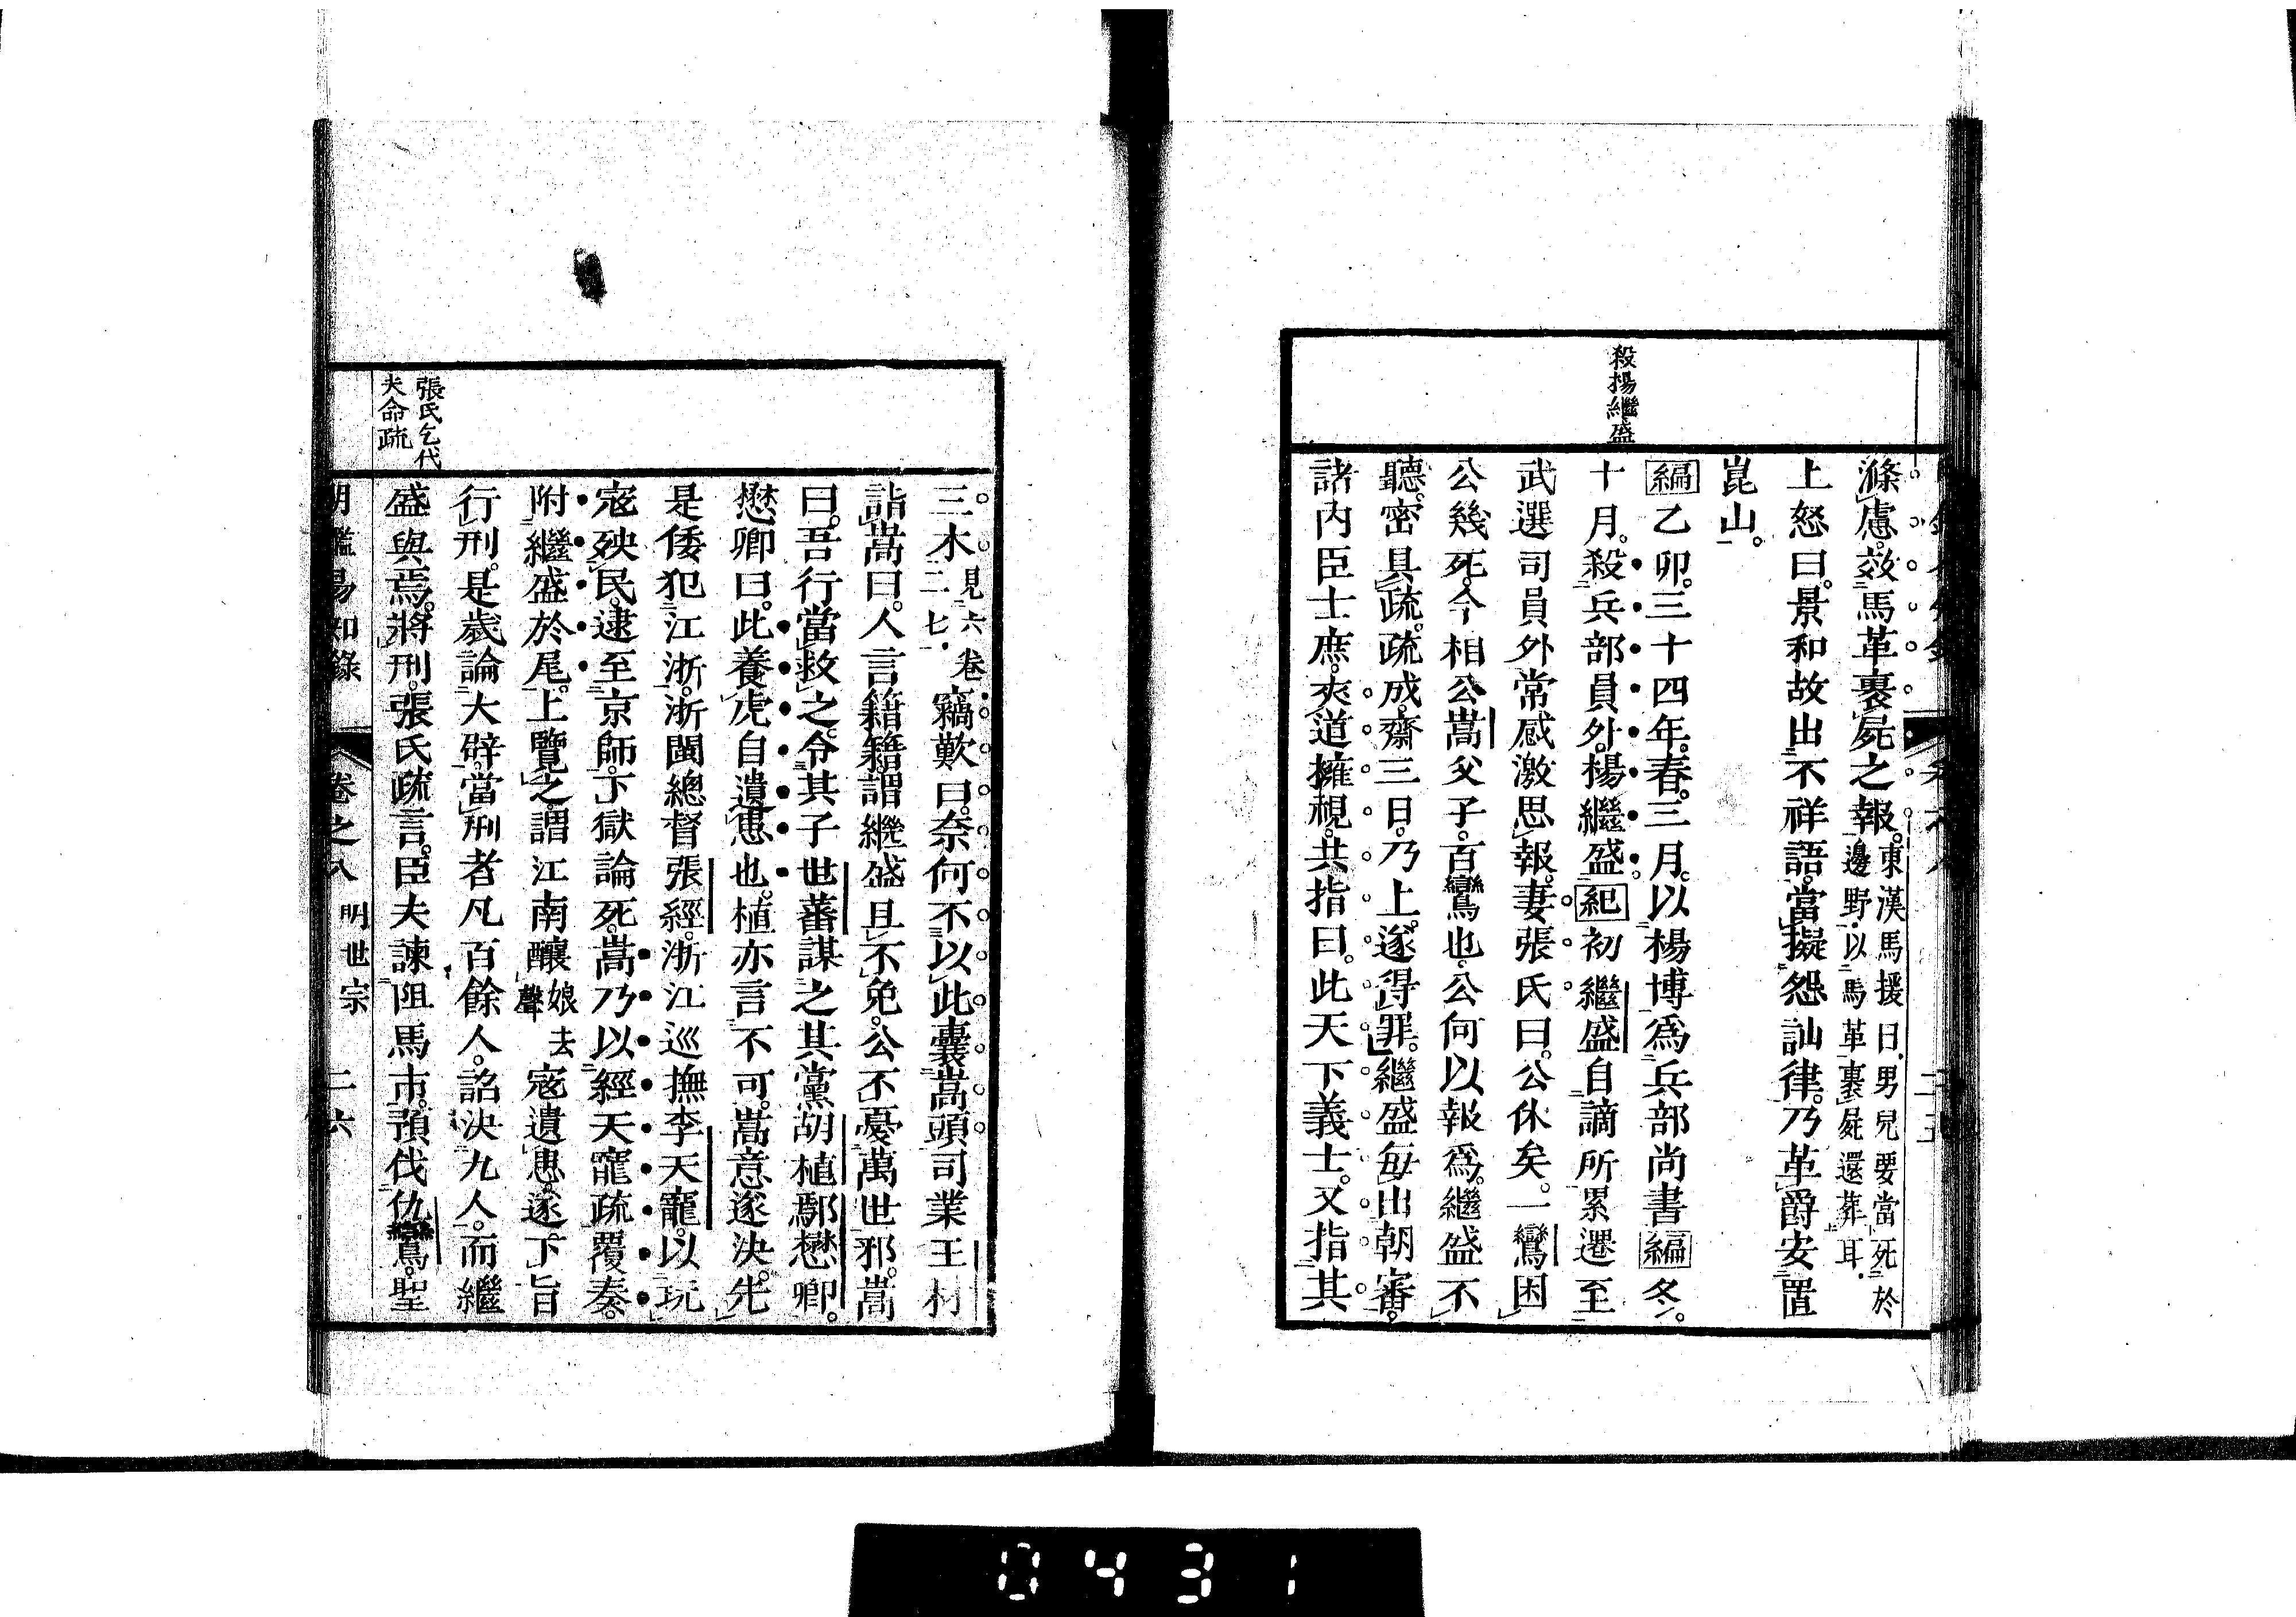 殺揚繼盛
滌慮。效馬革裹屍之報。東漢馬援曰、男兒要當死於邊野、以馬革裹屍還葬耳、
上怒曰。景和故出不祥語。當擬怨訕律。乃革爵安置
崑山。
編乙卯。三十四年。春。三月。以楊博爲兵部尚書編冬。
十月。殺兵部員外。楊繼盛紀初繼盛自謫所累遷至
武選司員外常感激思報。妻張氏曰。公休矣。一鸞困
公幾死。今相公嵩父子。百鸞也。公何以報爲。繼盛不
聽。密具疏。疏成。齋三日。乃上。遂得罪。繼盛每出朝審。
諸内臣士庶。夾道擁視。共指曰。此天下義士。又指其
三木見六卷二七。竊歎曰。奈何不以此囊嵩頭。司業王材
詣嵩曰。人言籍籍謂繼盛且不免。公不憂萬世邪。嵩
曰。吾行當救之。令其子世蕃謀之其黨胡植鄢懋卿。
懋卿曰。此養虎自遺患也。植亦言不可。嵩意遂決。先
是倭犯江浙。浙閩總督張經。浙江巡撫李天寵。以玩
寇殃民。逮至京師。下獄論死。嵩乃以經天寵疏覆奏。
附繼盛於尾。上覽之謂江南釀娘去聲寇遺患。遂下旨
行刑。是歲論大辟。當刑者凡百餘人。詔決九人。而繼
盛與焉。將刑。張氏疏言。臣夫諫阻馬市。預伐仇鸞。聖
張氏乞代
夫命疏
明鑑易知錄 卷之八 明世宗 二六
0431